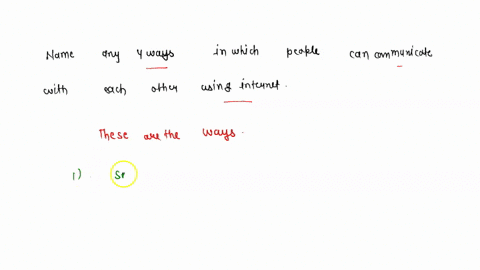 Name any 4 ways in which people can ommunicate
with each other using internet.
These are the ways.
1) Se